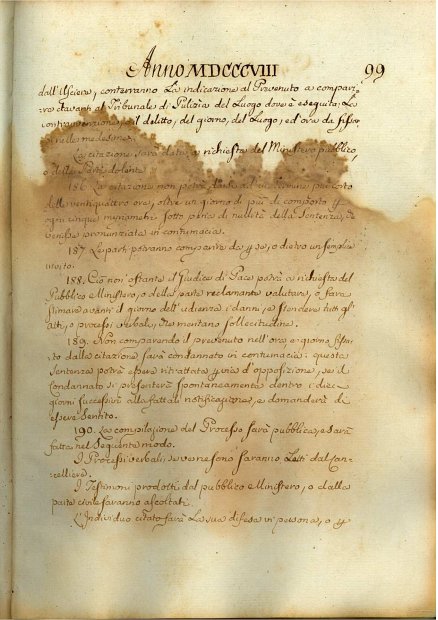 Anno MDCCCVIII 99
dall'Usciere, conterranno La indicazione al Prevenuto a compari-
re davanti al Tribunale di Pulizia del Luogo dove è eseguita, La
contravenzione, il delitto, del giorno, del Luogo, ed ora da fissar
si nelle medesime.
La citazione sarà data, a richiesta del Ministero pubblico,
o della Parte dolente
186. La citazione non potrà darsi ad un termine più corto
delle ventiquattro ore, oltre un giorno di più di comporto
ogni cinque myriametri sotto pena di nullità della Sentenza, che
venisse pronunziata in contumacia.
187. Le parti potranno comparire da se, o dietro un semplice
invito.
188. Ciò non ostante il Giudice di Pace potrà a richiesta del
Pubblico Ministero, o della parte reclamante valutare, o fare
stimare avanti il giorno dell'udienza i danni, e stendere tutti gli
atti, o processi verbali, che mentano sollecitudine.
189. Non comparendo il prevenuto nell'ora e giorno fissa-
to dalla citazione sarà condannato in contumacia: questa
Sentenza potrà essere ritrattata per via d'opposizione, se il
Condannato si presenterà spontaneamente dentro i dieci
giorni successivi alla fattali notificazione, e domanderà di
essere Sentito.
190. La compilazione del Processo sarà pubblica, e sarà
fatta nel Seguente modo.
I Processi verbali se ve ne sono saranno Letti dal Can-
celliere.
I Testimoni prodotti dal pubblico Ministero, o dalla
parte civile saranno ascoltati.
L'Individuo citato farà La sua difesa in persona, o